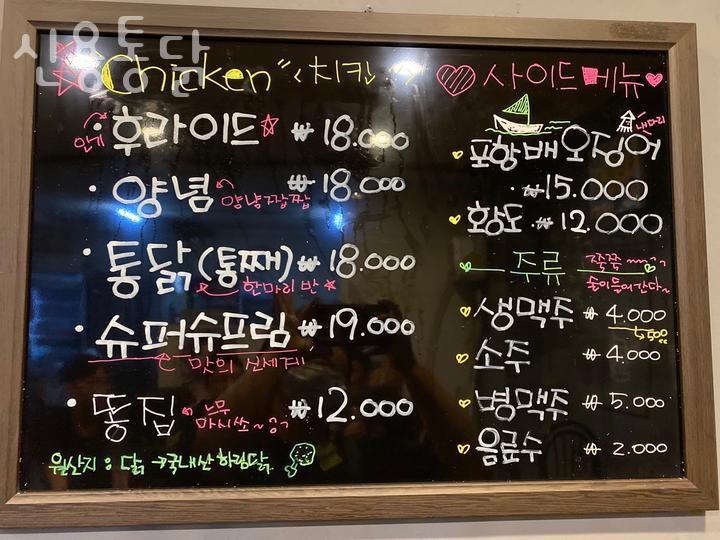 신용통닭
Chicken "치킨"
인기
후라이드 ₩ 18.000
양념 ₩ 18.000
양냠짭짭
통닭(통째) ₩ 18.000
한마리 반
슈퍼슈프림 ₩ 19.000
맛의 신세계
똥집 ₩ 12.000
너무
마시쏘~
원산지 : 닭 → 국내산 하림닭
사이드메뉴
포항배오징어
₩ 15.000
황도 ₩ 12.000
주류
쭉쭉
술이 들어간다~
생맥주 ₩ 4.000
500cc
소주 ₩ 4.000
병맥주 ₩ 5.000
음료수 ₩ 2.000